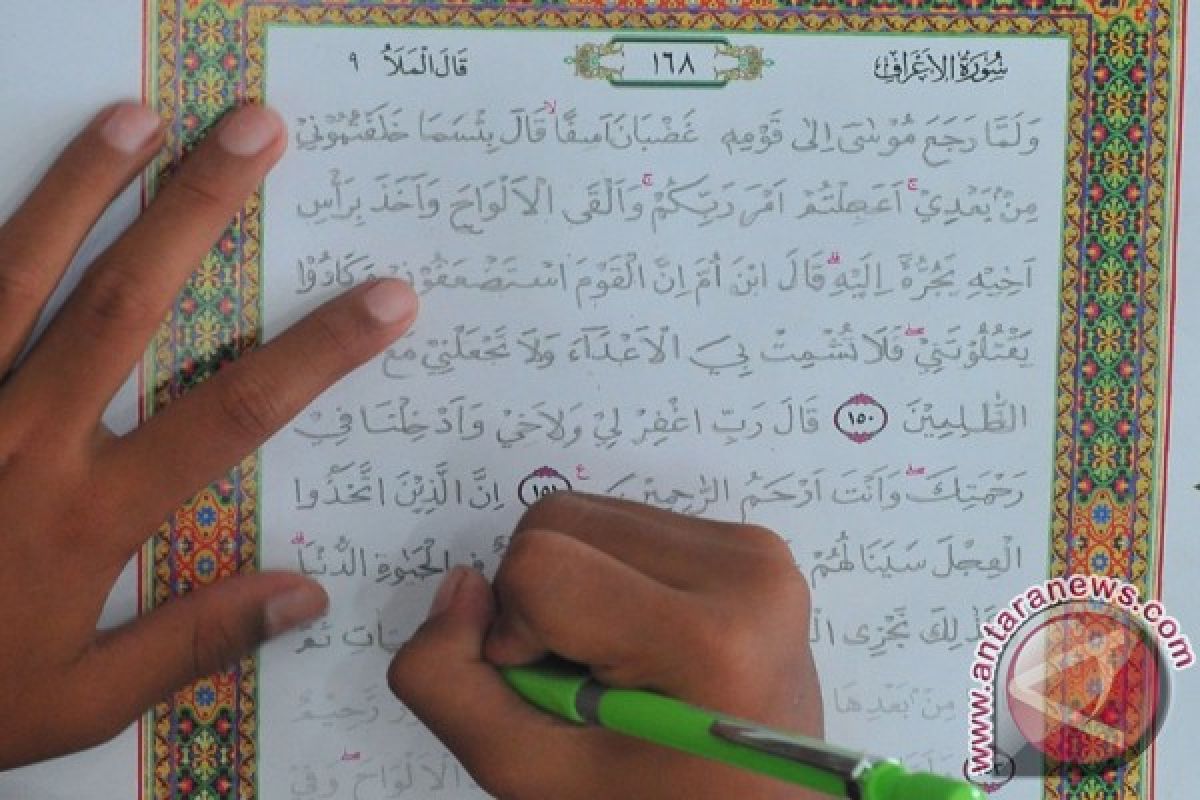 سُورَةُ الْاَعْرَافِ
١٦٨
قَالَ الْمَلَأُ ٩
وَلَمَّا رَجَعَ مُوْسٰٓى اِلٰى قَوْمِهٖ غَضْبَانَ اَسِفًاۙ قَالَ بِئْسَمَا خَلَفْتُمُوْنِيْ
مِنْۢ بَعْدِيْۚ اَعَجِلْتُمْ اَمْرَ رَبِّكُمْۚ وَاَلْقَى الْاَلْوَاحَ وَاَخَذَ بِرَأْسِ
اَخِيْهِ يَجُرُّهٗٓ اِلَيْهِۗ قَالَ ابْنَ اُمَّ اِنَّ الْقَوْمَ اسْتَضْعَفُوْنِيْ وَكَادُوْا
يَقْتُلُوْنَنِيْۖ فَلَا تُشْمِتْ بِيَ الْاَعْدَاۤءَ وَلَا تَجْعَلْنِيْ مَعَ
الظّٰلِمِيْنَ ١٥٠ قَالَ رَبِّ اغْفِرْ لِيْ وَلِاَخِيْ وَاَدْخِلْنَا فِيْ
رَحْمَتِكَۖ وَاَنْتَ اَرْحَمُ الرّٰحِمِيْنَ ١٥١ اِنَّ الَّذِيْنَ اتَّخَذُوا
الْعِجْلَ سَيَنَالُهُمْ فِى الْحَيٰوةِ الدُّنْيَاۗ
وَكَذٰلِكَ نَجْزِى
مِنْۢ بَعْدِهَا رَّحِيْمٌ
الْاَلْوَاحَۖ وَفِيْ
www.antaranews.com